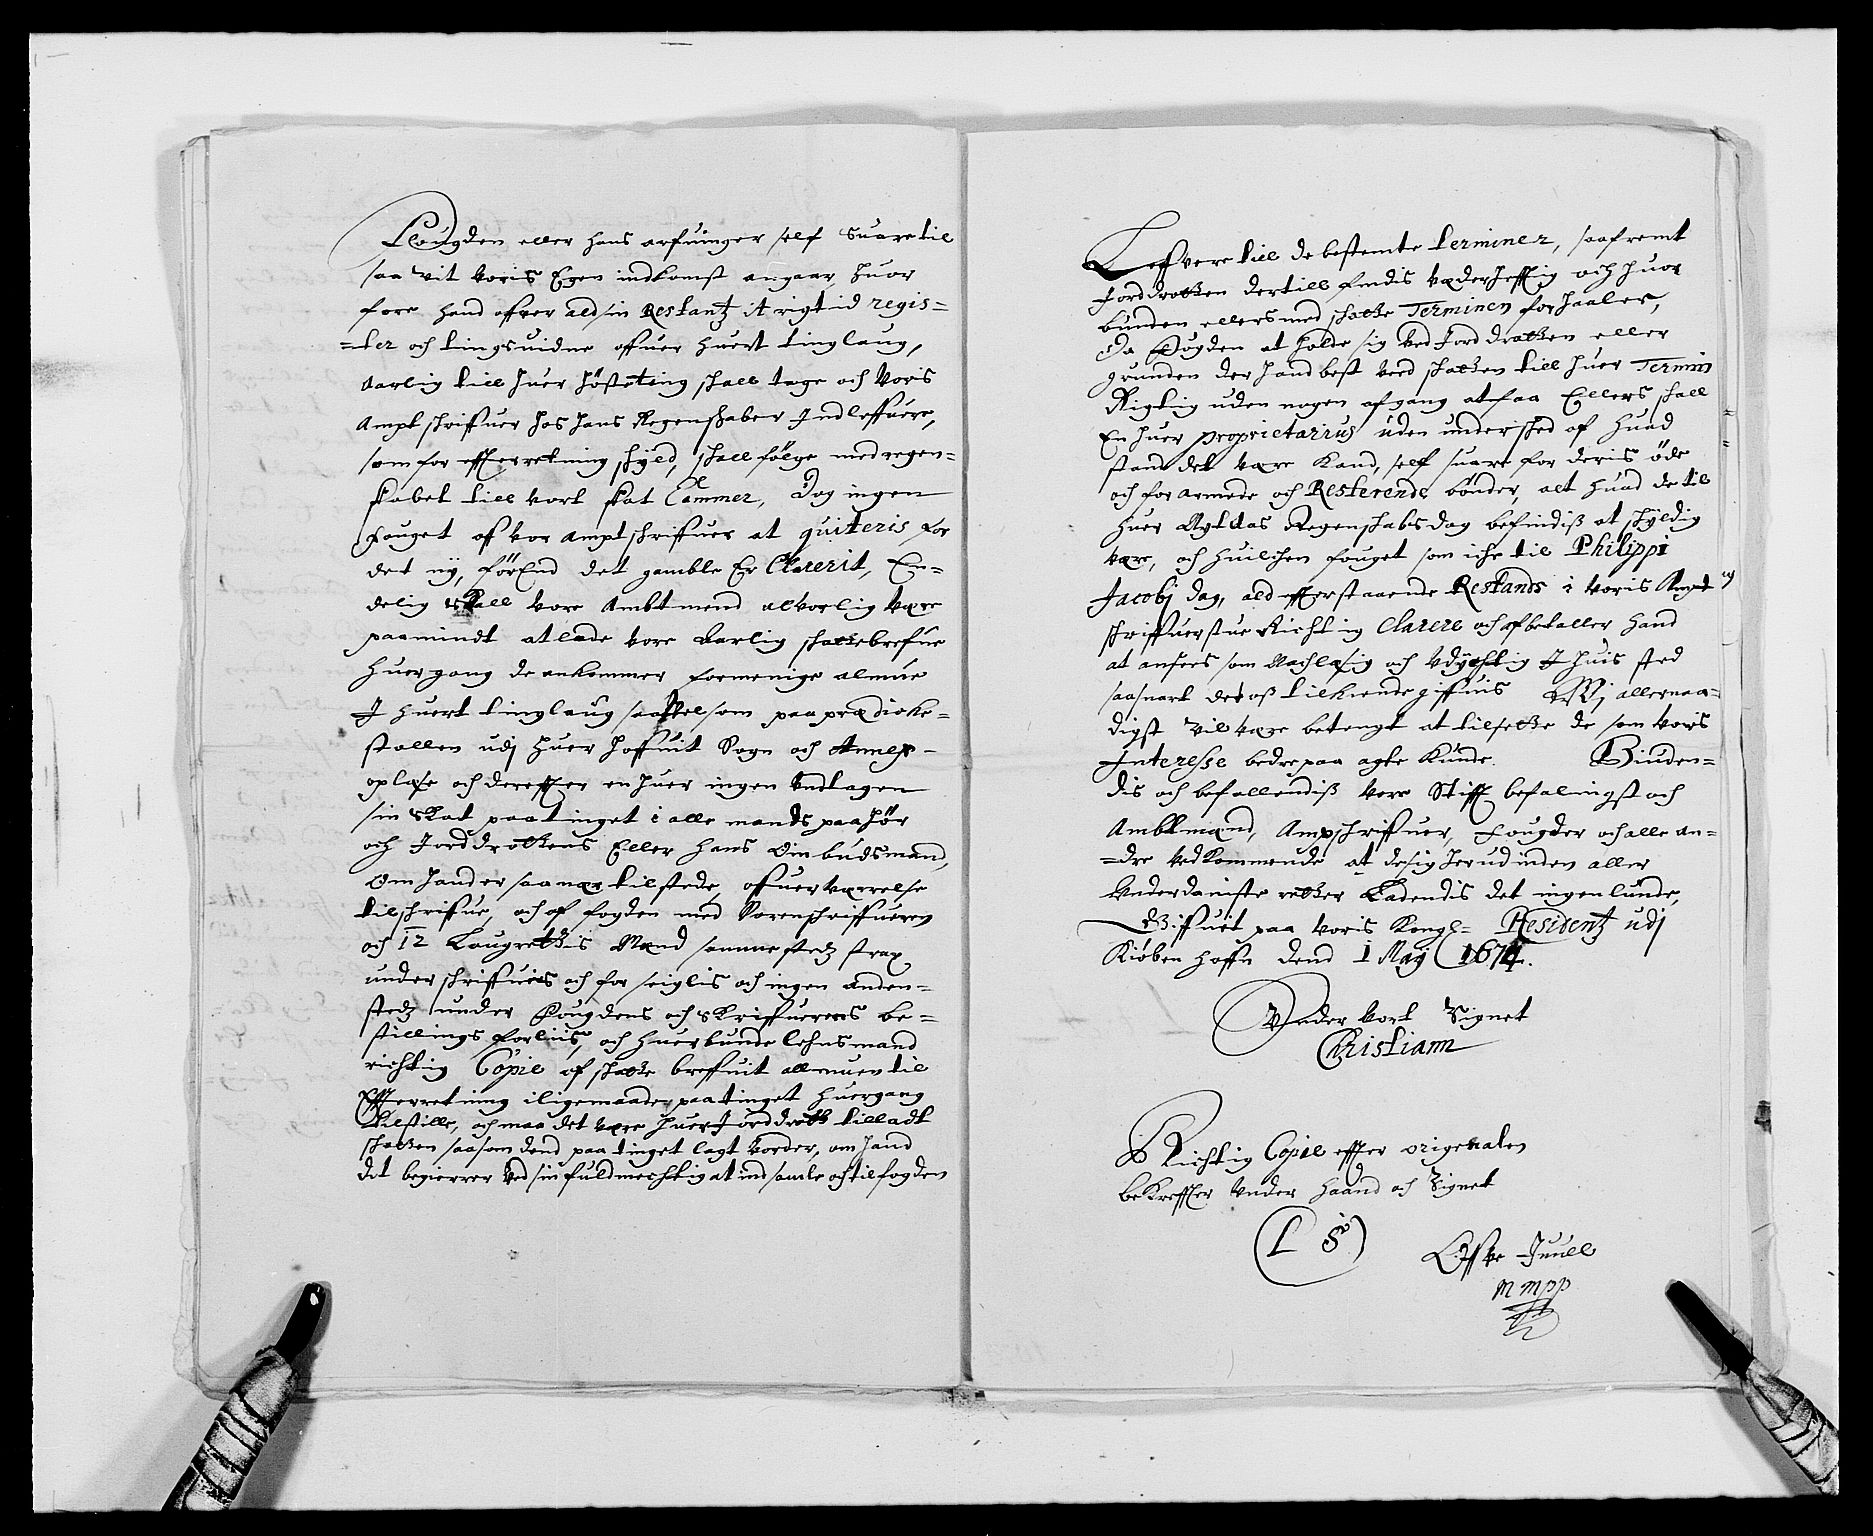 Fougden eller hans arfuinger self suare til
saa vit voris Egen indkomst angaar, huor
fore hand offver ald sin Restantz it rigtid regis=
=ter och tingsuidne offuer huert tinglaug,
aarlig till huer höste ting shall tage och voris
Ampt schriffuer hos hans Regenschaber Indleffuere,
som for effterretning schyld, schall fölge med regen=
skabet till vort skat Cammer, Dog ingen
fouget aff vor ampt schriffuer at quiteris for
det nÿ, förend det gamble Er Clarerit, En=
delig skall vore Ambtmend alvorlig være
paamindt at lade vore Aarlig schattebrefue
huer gang de ankommer for menige almue
I huert tinglaug saa vel som paa prædicke=
stollen udj huer hoffuit Sogn och Annex
oplæse och derefter en huer ingen undtagen
sin skat paa tinget i alle mands paahör
och Jorddrottens Eller hans Ombudsmand,
Om hand er saa nær tilstede, ofuerværrelse
tilschriffue, och af fogden med Sorenschriffueren
och 12 Laugrettis Mænd samme stedz strax
underschriffuis och forseiglis och ingen anden=
stedz under Fougdens och Skriffuerens be=
stillings forliis, och huer bunde lehnsmand
richtig Copie af schatte breffuit allenuen til
Effterretning i ligemaader paa tinget huergang
tilstille, och maa det være huer Jorddrott tilladt
schatten saasom dend paa tinget lagt vorder, om hand
det begierer ved sin fuldmechtig at ind samle och til fogden
Leffvere till de bestemte terminer, saafremt
Jorddrotten dertill findis vederheftig och huor
bunden ellers med schatte Terminen forhaaler,
Da Fogden at holde sig ved Jorddrotten eller
grunden der hand best ved schatten till huer Termin
Rigtig uden nogen afgang at faa Ellers schall
En huer proprietarius uden undersched af huad
stand det være kand, self suare for deris öde
och forarmede och Resterende bönder, alt huad de til
huer Regenschabs dag befindiß at schyldig
være, och huilchen fouget som iche til Philippi
Jacobj dag, ald effterstaaende Restands i voris Ampt
schriffuerstue Richtig Clarere och afbetaller hand
at ansees som Nachlæsig och Vdÿchtig I huis sted
saasnart det oß tilkiende giffuis Wj allernaa=
digst vil være betengt at tilsette de som voris
Interesse bedre paa agte kunde. Biuden=
dis och befallendiß vore Stifft befalingst och
Ambtmænd, Amptschriffuer, Fougder och alle an=
=dre vedkommende at de sig herudinden aller
Underdanigste retter Ladendis det ingenlunde,
Giffuet paa voris Kongl= Residentz udj
Kiöbenhaffn dend 1 Maj 1674.
Under Vort Signet
Christiann
Richtig Copie effter origenalen
bekreffter Under haand och Signet
(L S)
Offve Juuell
mmpp